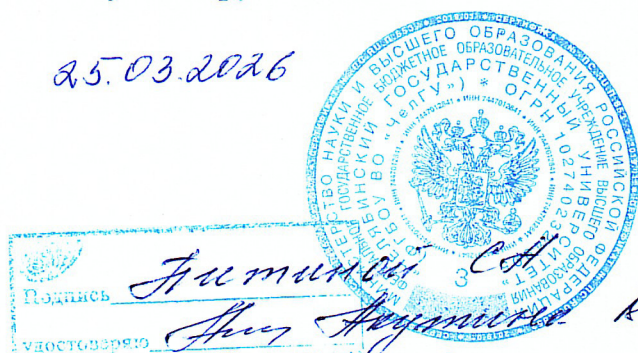 25.03.2026
МИНИСТЕРСТВО НАУКИ И ВЫСШЕГО ОБРАЗОВАНИЯ РОССИЙСКОЙ ФЕДЕРАЦИИ
ГОСУДАРСТВЕННОЕ БЮДЖЕТНОЕ ОБРАЗОВАТЕЛЬНОЕ УЧРЕЖДЕНИЕ ВЫСШЕГО ОБРАЗОВАНИЯ
ЧЕЛЯБИНСКИЙ ГОСУДАРСТВЕННЫЙ УНИВЕРСИТЕТ"
ФГБОУ ВО «ЧелГУ») * ОГРН
ИНН 7447012841
3
Подпись Питиной СА
удостоверяю